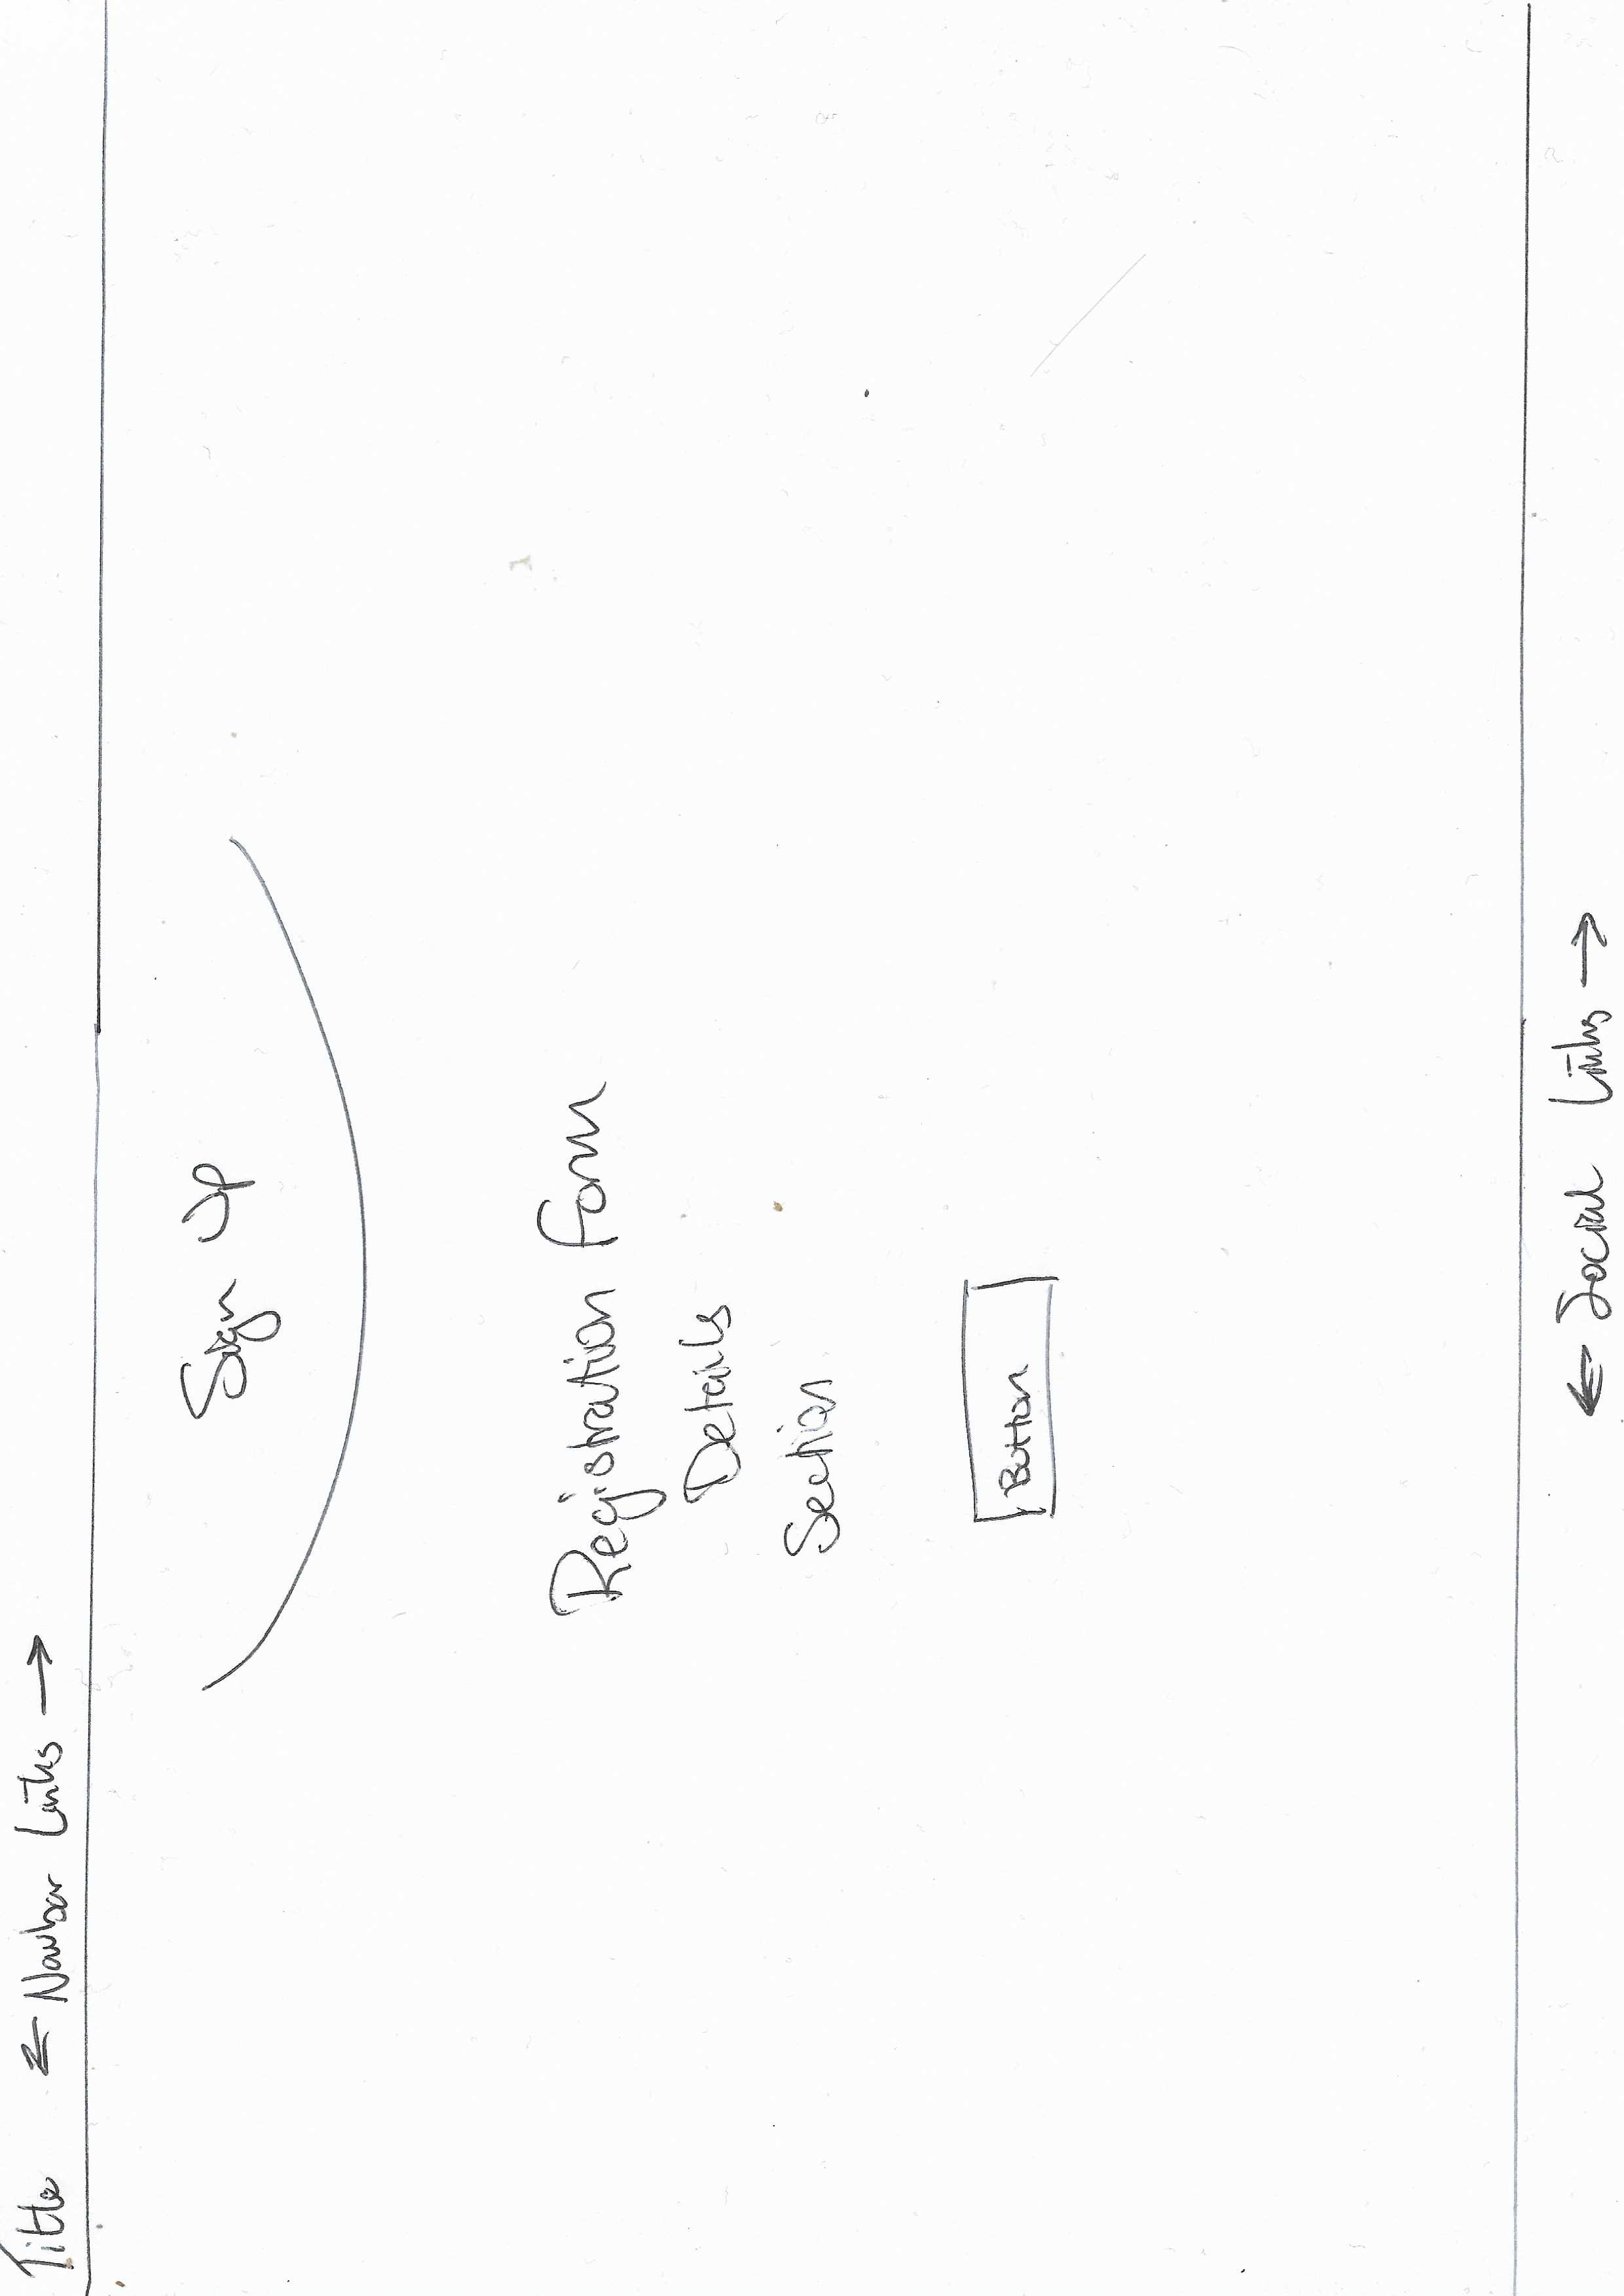 Title ← Navbar Links →
Sign Up
Registration Form
Details
Section
Button
← Social Links →